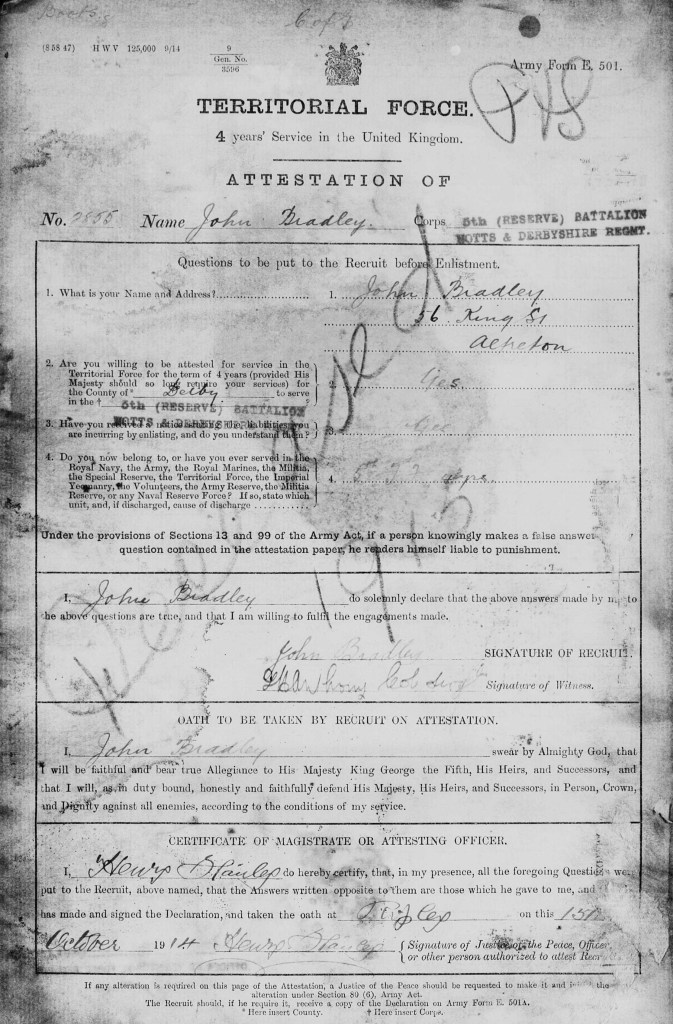 (8 58 47) H W V 125,000 9/14
9
Gen. No.
3596
Army Form E. 501.
TERRITORIAL FORCE.
4 years' Service in the United Kingdom.
ATTESTATION OF
No. 2855 Name John Bradley. Corps 5th (RESERVE) BATTALION
NOTTS & DERBYSHIRE REGMT.
Questions to be put to the Recruit before Enlistment.
1. What is your Name and Address? 1. John Bradley
56 King St
Alfreton
2. Are you willing to be attested for service in the
Territorial Force for the term of 4 years (provided His
Majesty should so long require your services) for
the County of * Derby to serve
in the † 5th (RESERVE) BATTALION ?
NOTTS & DERBYSHIRE
2. Yes.
3. Have you received a notice of the liabilities you
are incurring by enlisting, and do you understand them?
3. Yes
4. Do you now belong to, or have you ever served in the
Royal Navy, the Army, the Royal Marines, the Militia,
the Special Reserve, the Territorial Force, the Imperial
Yeomanry, the Volunteers, the Army Reserve, the Militia
Reserve, or any Naval Reserve Force? If so, state which
unit, and, if discharged, cause of discharge
4.
1915
Under the provisions of Sections 13 and 99 of the Army Act, if a person knowingly makes a false answer
question contained in the attestation paper, he renders himself liable to punishment.
I, John Bradley do solemnly declare that the above answers made by me to
the above questions are true, and that I am willing to fulfil the engagements made.
John Bradley SIGNATURE OF RECRUIT.
Signature of Witness.
OATH TO BE TAKEN BY RECRUIT ON ATTESTATION.
I, John Bradley swear by Almighty God, that
I will be faithful and bear true Allegiance to His Majesty King George the Fifth, His Heirs, and Successors, and
that I will, as in duty bound, honestly and faithfully defend His Majesty, His Heirs, and Successors, in Person, Crown,
and Dignity against all enemies, according to the conditions of my service.
CERTIFICATE OF MAGISTRATE OR ATTESTING OFFICER.
I, Henry do hereby certify, that, in my presence, all the foregoing Questions were
put to the Recruit, above named, that the Answers written opposite to them are those which he gave to me, and
has made and signed the Declaration, and taken the oath at Ripley on this 15th
October 1914 Henry
Signature of Justice of the Peace, Officer
or other person authorized to attest Recruit
If any alteration is required on this page of the Attestation, a Justice of the Peace should be requested to make it and the
alteration under Section 80 (6), Army Act.
The Recruit should, if he require it, receive a copy of the Declaration on Army Form E. 501A.
* Here insert County. † Here insert Corps.